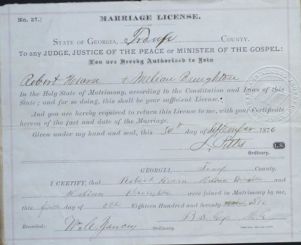 No. 27.) MARRIAGE LICENSE.
STATE OF GEORGIA, Troup COUNTY.
To any JUDGE, JUSTICE OF THE PEACE or MINISTER OF THE GOSPEL:
You are Hereby Authorized to Join
Robert &
In the Holy State of Matrimony, according to the Constitution and Laws of this
State; and for so doing, this shall be your sufficient License.
And you are hereby required to return this License to me, with your Certificate
hereon of the fact and date of the Marriage.
Given under my hand and seal, this 30th day of September 1876
Ordinary.
GEORGIA, Troup County.
I CERTIFY, that Robert and
were joined in Matrimony by me,
this day of Oct Eighteen Hundred and Seventy Six
Recorded, Ordinary.